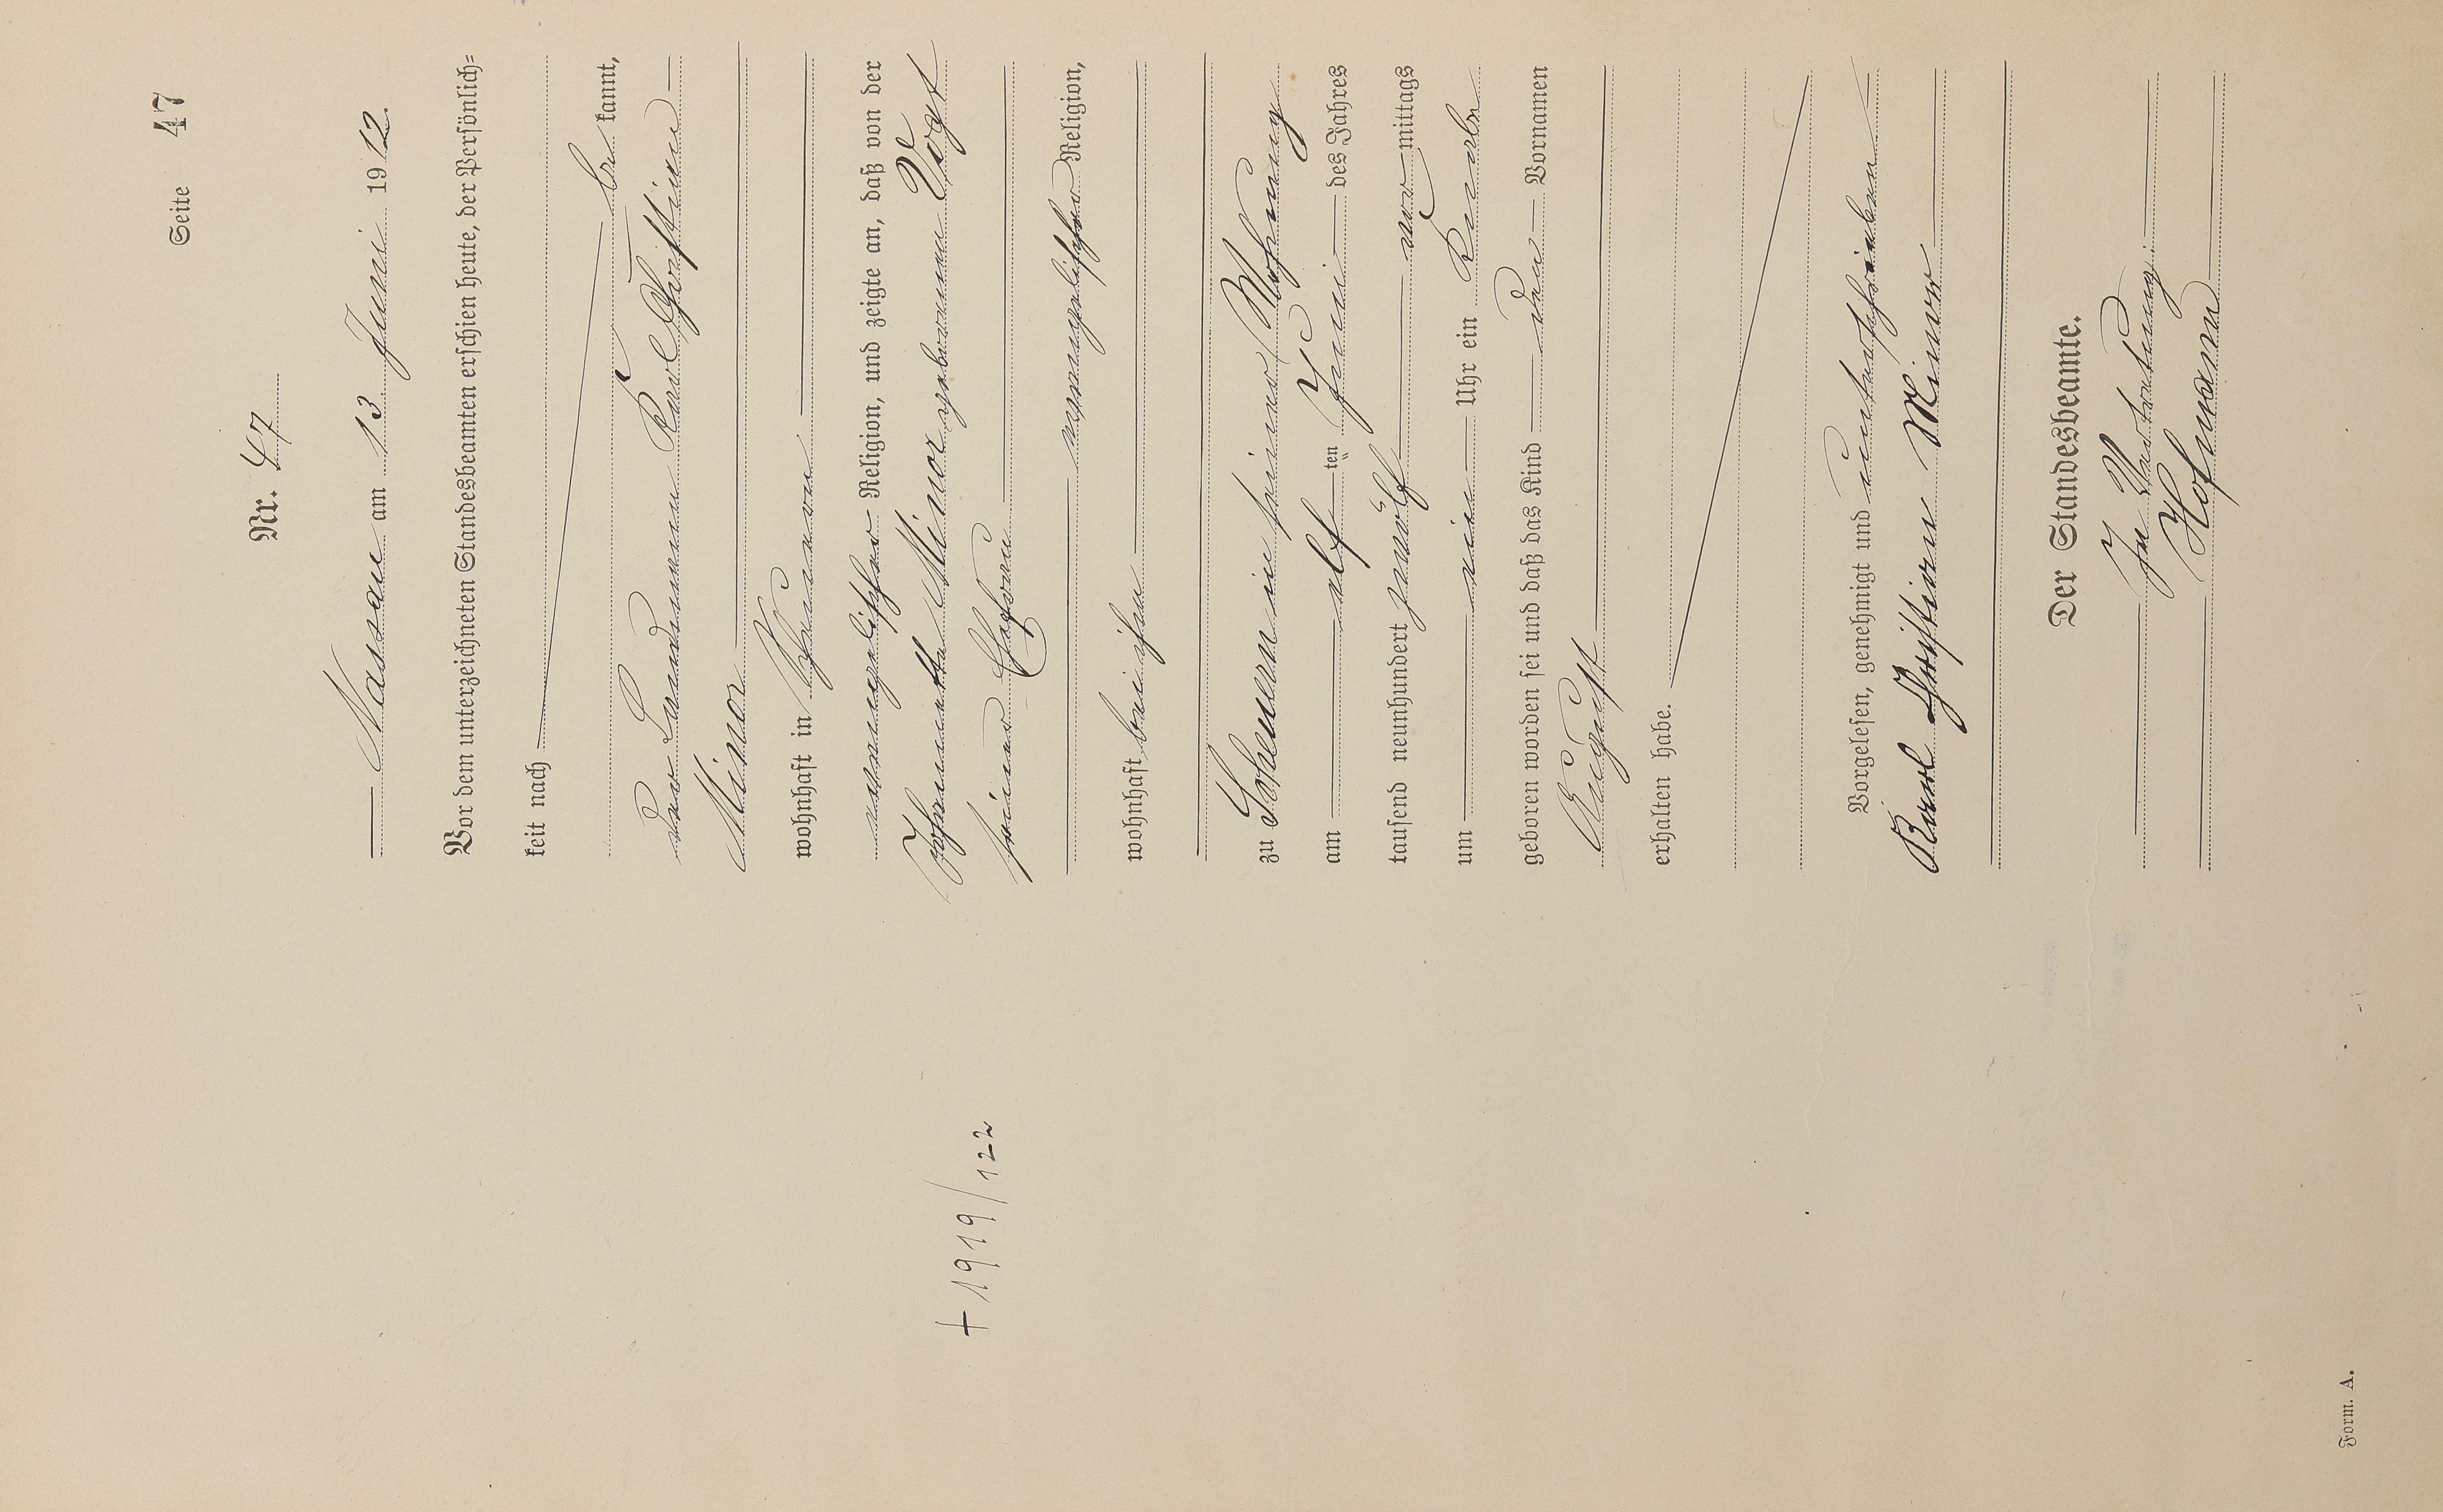 Seite 47
Nr. 47
Nassau am 13 Juni 1912.
Vor dem unterzeichneten Standesbeamten erschien heute, der Persönlich⸗
keit nach
be kannt,
der Landmann Karl Christian
Minor
wohnhaft in Scheuern
evangelischer Religion, und zeigte an, daß von der
Minor geborenen Vogt
seiner Ehefrau
evangelischer Religion,
wohnhaft bei ihm
zu Scheuern in seiner Wohnung
am elf ten Juni des Jahres
tausend neunhundert zwölf vor mittags
um ein Uhr ein Knabe
geboren worden sei und daß das Kind den Vornamen
August
erhalten habe.
Vorgelesen, genehmigt und unterschrieben
Karl Christian Minor
Der Standesbeamte.
In Vertretung:
Hofmann
+ 1919/122
Form. A.